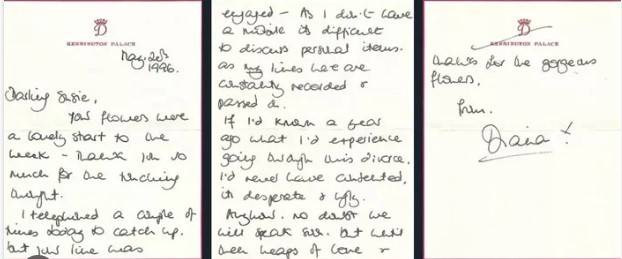 D
KENSINGTON PALACE
May. 20th
1996.
Darling Susie,
Your flowers were
a lovely start to the
week - thank you so
much for the touching
thought.
I telephoned a couple of
times today to catch up,
but your line was
engaged - As I don't have
a mobile its difficult
to discuss personal items.
as my lines here are
constantly recorded &
passed on.
If I'd known a year
ago what I'd experience
going through this divorce.
I'd never have consented,
its desperate & ugly.
Anyhow. no doubt we
will speak soon. but until
then heaps of love &
D
KENSINGTON PALACE
thanks for the gorgeous
flowers.
from.
Diana x